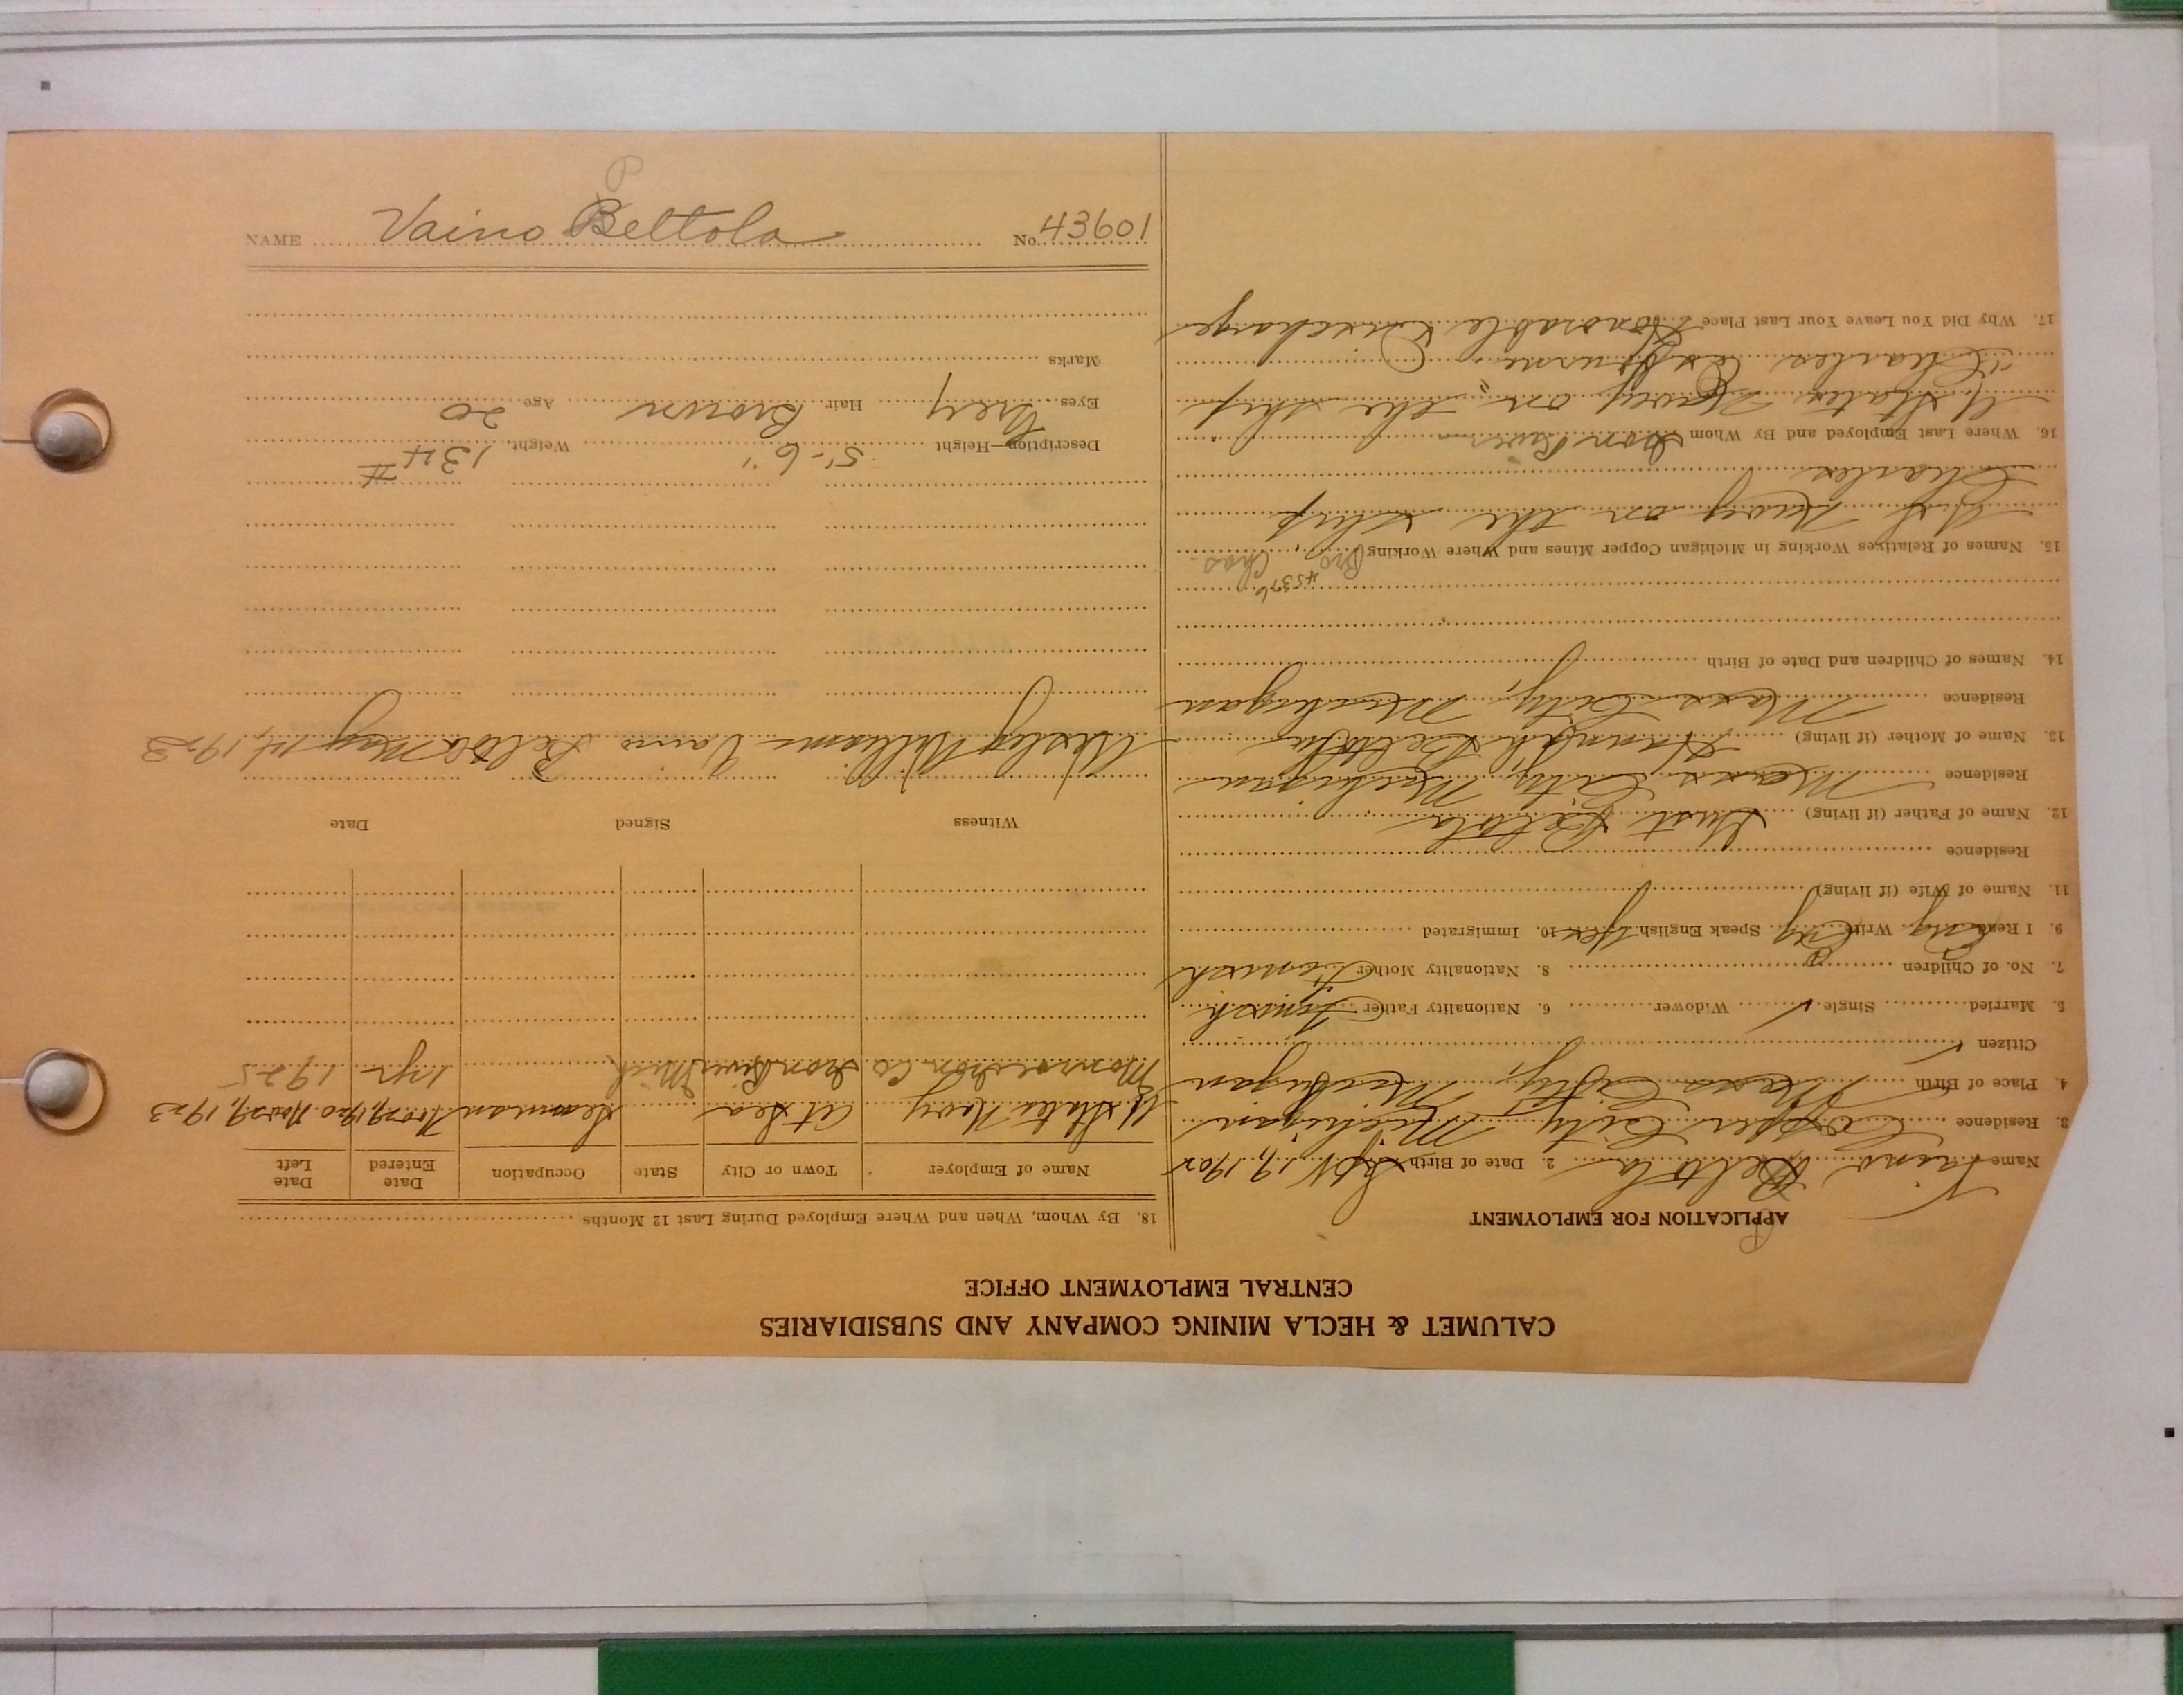 CALUMET & HECLA MINING COMPANY AND SUBSIDIARIES
CENTRAL EMPLOYMENT OFFICE
APPLICATION FOR EMPLOYMENT
P
Name Vaino Beltola 2. Date of Birth 19, 1902
3. Residence Copper City Michigan
4. Place of Birth Mass City, Michigan
Citizen ✓
5. Married Single ✓ Widower 6. Nationality Father Finnish
7. No. of Children 0 8. Nationality Mother Finnish
9. I Read Eng Write Eng Speak English Yes 10. Immigrated
11. Name of Wife (if living)
Residence
12. Name of Father (if living) Gust Beltola
Residence Mass City, Michigan
13. Name of Mother (if living) Hannah Beltola
Residence Mass City, Michigan
14. Names of Children and Date of Birth
45376
15. Names of Relatives Working in Michigan Copper Mines and Where Working Bro Chas
Navy on the ship
Charles
16. Where Last Employed and By Whom Iron River
U States Navy on the ship
"Charles
17. Why Did You Leave Your Last Place Honorable Discharge
18. By Whom, When and Where Employed During Last 12 Months
Name of Employer Town or City State Occupation Date Entered Date Left
U States Navy At Sea Seaman Nov 29, 1920 Nov 29, 1923
Monroe Iron Co Iron River Mich 1 yr 1925
Witness Signed Date
Wesley Williams Vaino Beltola May 1st, 1923
Description—Height 5'-6" Weight 134 #
Eyes Grey Hair Brown Age 20
Marks
P
NAME Vaino Beltola No. 43601